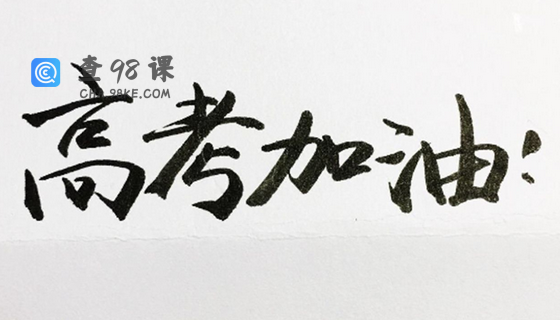 查98课
CHA98KE.COM
高考加油!